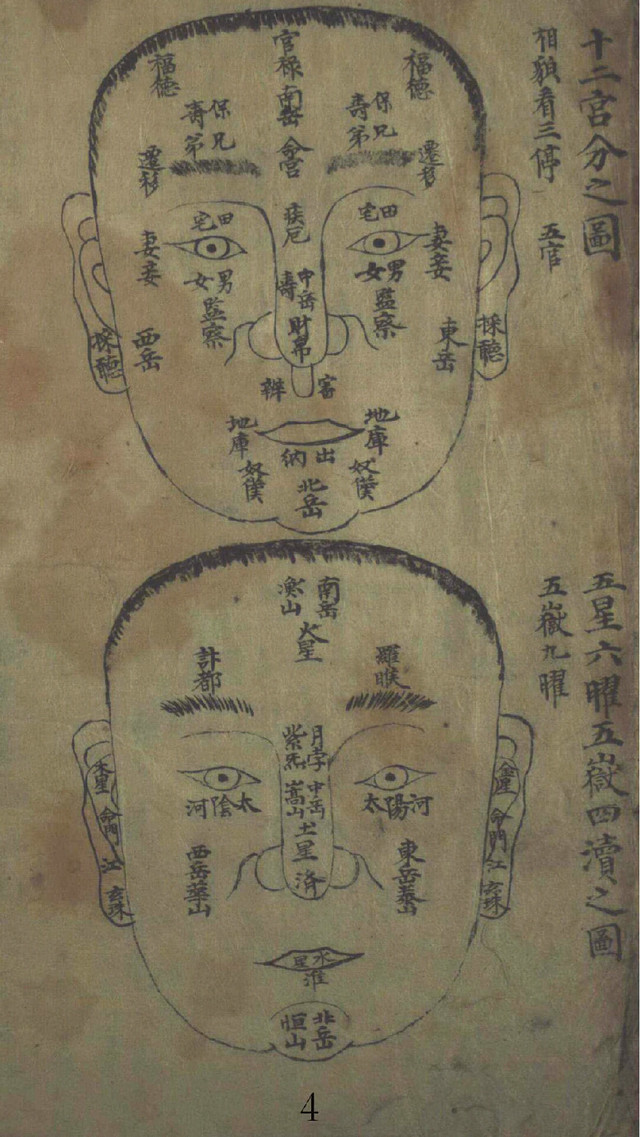 十二宮分之圖
相貌看三停 五官
官祿
南岳
命宮
福德
福德
保兄
壽弟
保兄
壽弟
遷移
遷移
田宅
田宅
疾厄
妻妾
妻妾
男女
男女
中岳
壽
監察
監察
財帛
採聽
採聽
東岳
西岳
審
辨
地庫
地庫
出納
奴僕
奴僕
北岳
五星六曜五嶽四瀆之圖
五嶽九曜
南岳
火星
羅睺
計都
月孛
紫炁
太陽河
太陰河
中岳
嵩山
土星
济
金星
命門
江
玄珠
木星
命門
江
玄珠
東岳
西岳華山
水星
淮
北岳
恒山
4